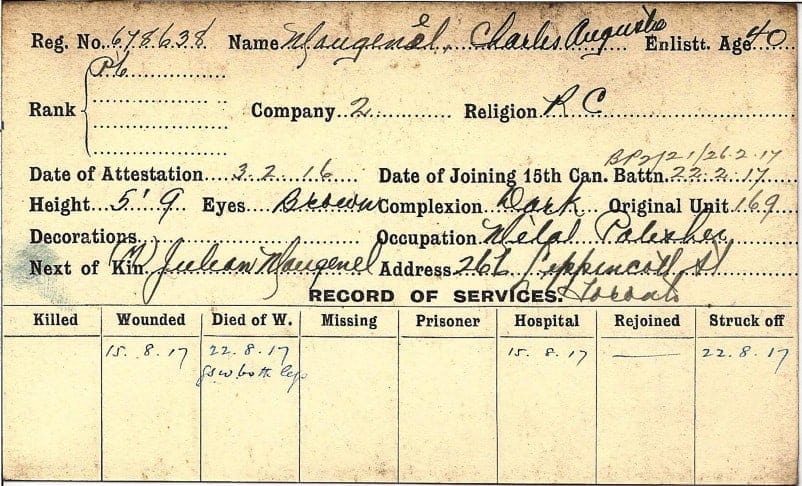 Reg. No. 678638 Name Maugenel, Charles Auguste Enlistt. Age 40
Pte
Rank Company 2 Religion R C
21/26.2.17
Date of Attestation 3.2.16 Date of Joining 15th Can. Battn. 22.2.17
Height 5' 9 Eyes Brown Complexion Dark Original Unit 169
Decorations Occupation Metal Polisher
Next of Kin Julian Maugenel Address 262 Lippincott St
Toronto
RECORD OF SERVICES.
Killed Wounded Died of W. Missing Prisoner Hospital Rejoined Struck off
15.8.17 22.8.17 15.8.17 — 22.8.17
gsw both legs